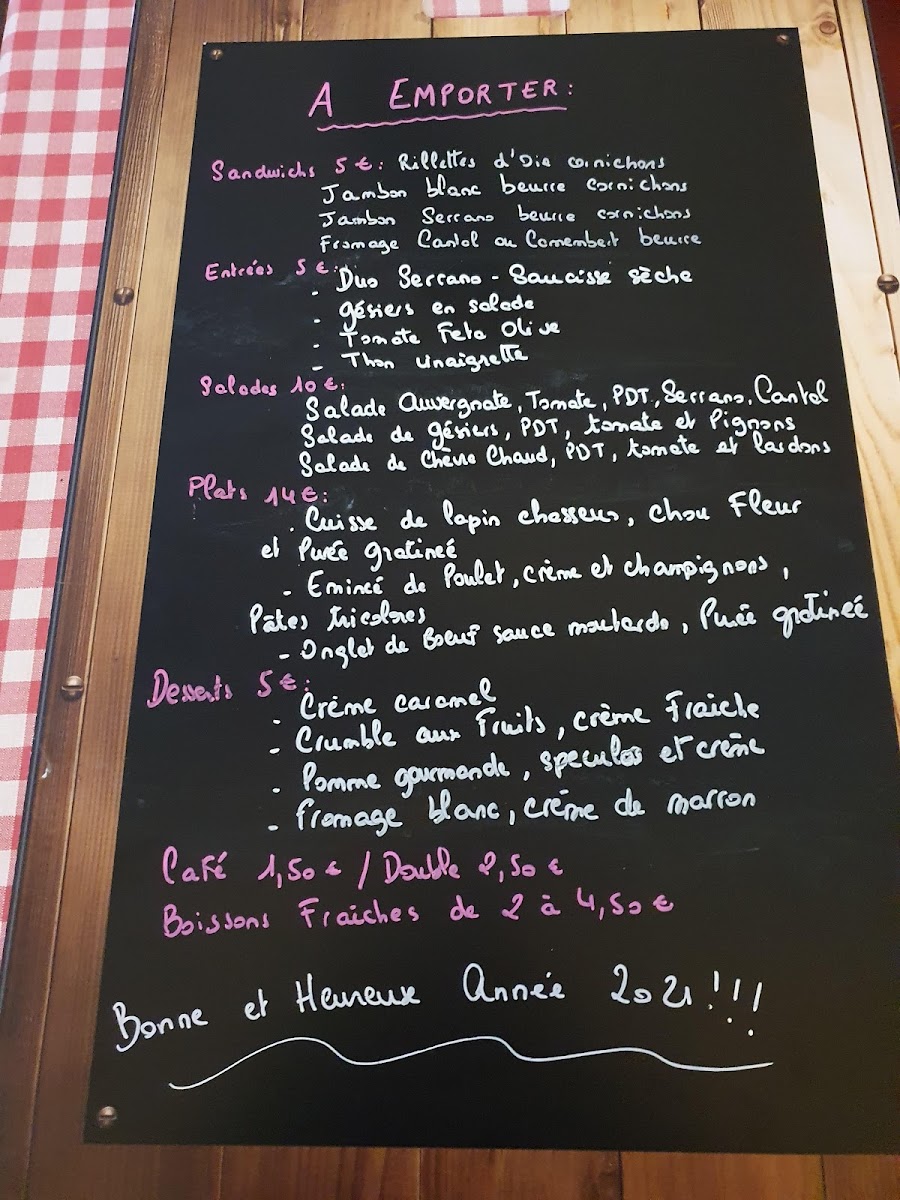 A EMPORTER:
Sandwichs 5€: Rillettes d'Oie cornichons
Jambon blanc beurre cornichons
Jambon Serrano beurre cornichons
Fromage Cantal ou Camembert beurre
Entrées 5€:
- Duo Serrano - Saucisse sèche
- gésiers en salade
- Tomate Feta Olive
- Thon vinaigrette
Salades 10€:
Salade Auvergnate, Tomate, PDT, Serrano, Cantal
Salade de gésiers, PDT, tomate et Pignons
Salade de Chèvre Chaud, PDT, tomate et lardons
Plats 14€:
. Cuisse de lapin chasseur, chou Fleur
et Purée gratineé
- Emincé de Poulet, crème et champignons,
Pâtes tricolores
- Onglet de Boeuf sauce moutarde, Purée gratineé
Desserts 5€:
- Crème caramel
- Crumble aux Fruits, crème Fraîche
- Pomme gourmande, speculos et crème
- Fromage blanc, crème de marron
Café 1,50€ / Double 2,50€
Boissons Fraîches de 2 à 4,50€
Bonne et Heureux Année 2021!!!